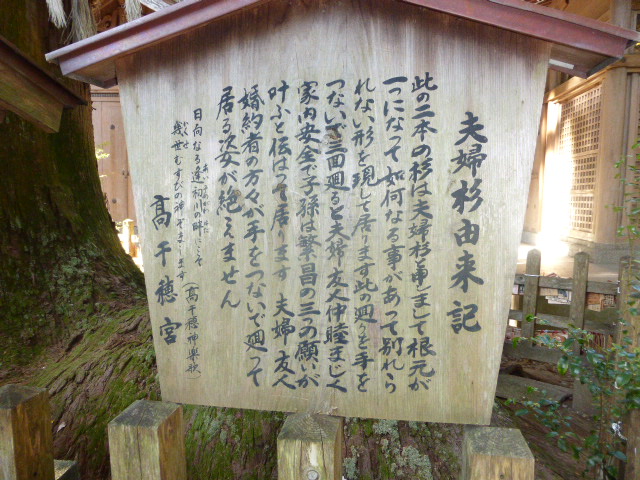 夫婦杉由来記
此の二本の杉は夫婦杉と申しまして根元が
一つになって如何なる事があっても別れら
れない形を現して居ります此の廻りを手を
つないで三回廻ると夫婦、友人仲睦まじく
家内安全で子孫は繁昌の三つの願いが
叶ふと伝はって居ります 夫婦、友人
婚約者の方々が手をつないで廻って
居る姿が絶へません
日向なる逢初川の畔にこそ
幾世むすびの神ぞまします(高千穂神楽歌)
高千穂宮